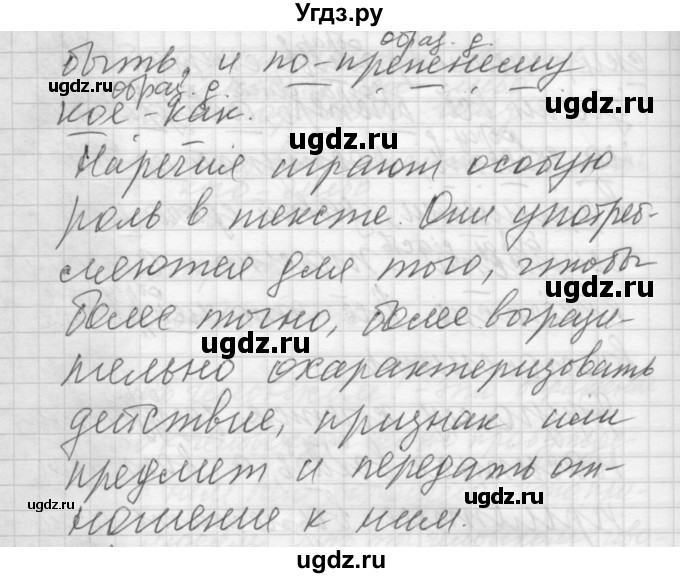 Угдз.ру
образ. д.
быть, и по-прежнему
ugdz.ru
образ. д.
кое-как.
ugdz.ru
Наречия играют особую
ugdz.ru
роль в тексте. Они употреб-
ugdz.ru
ляются для того, чтобы
ugdz.ru
более точно, более вырази-
ugdz.ru
тельно охарактеризовать
действие, признак или
ugdz.ru
предмет и передать от-
ugdz.ru
ugdz.ru
ношение к ним.
ugdz.ru